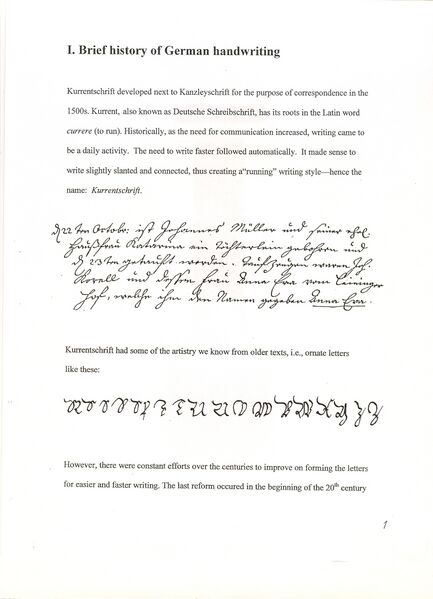 I. Brief history of German handwriting
Kurrentschrift developed next to Kanzleyschrift for the purpose of correspondence in the
1500s. Kurrent, also known as Deutsche Schreibschrift, has its roots in the Latin word
currere (to run). Historically, as the need for communication increased, writing came to
be a daily activity. The need to write faster followed automatically. It made sense to
write slightly slanted and connected, thus creating a“running” writing style—hence the
name: Kurrentschrift.
d 22 ten Octobr: ist Johannes Müller und seiner ehel.
Haußfrau Katarina ein Töchterlein gebohren und
d 23 ten getauft worden. Taufzeugen waren Joh.
Korell und dessen Frau Anna Eva vom Leininger
Hof, welche ihm den Namen gegeben Anna Eva.
Kurrentschrift had some of the artistry we know from older texts, i.e., ornate letters
like these:
However, there were constant efforts over the centuries to improve on forming the letters
for easier and faster writing. The last reform occured in the beginning of the 20th century
1